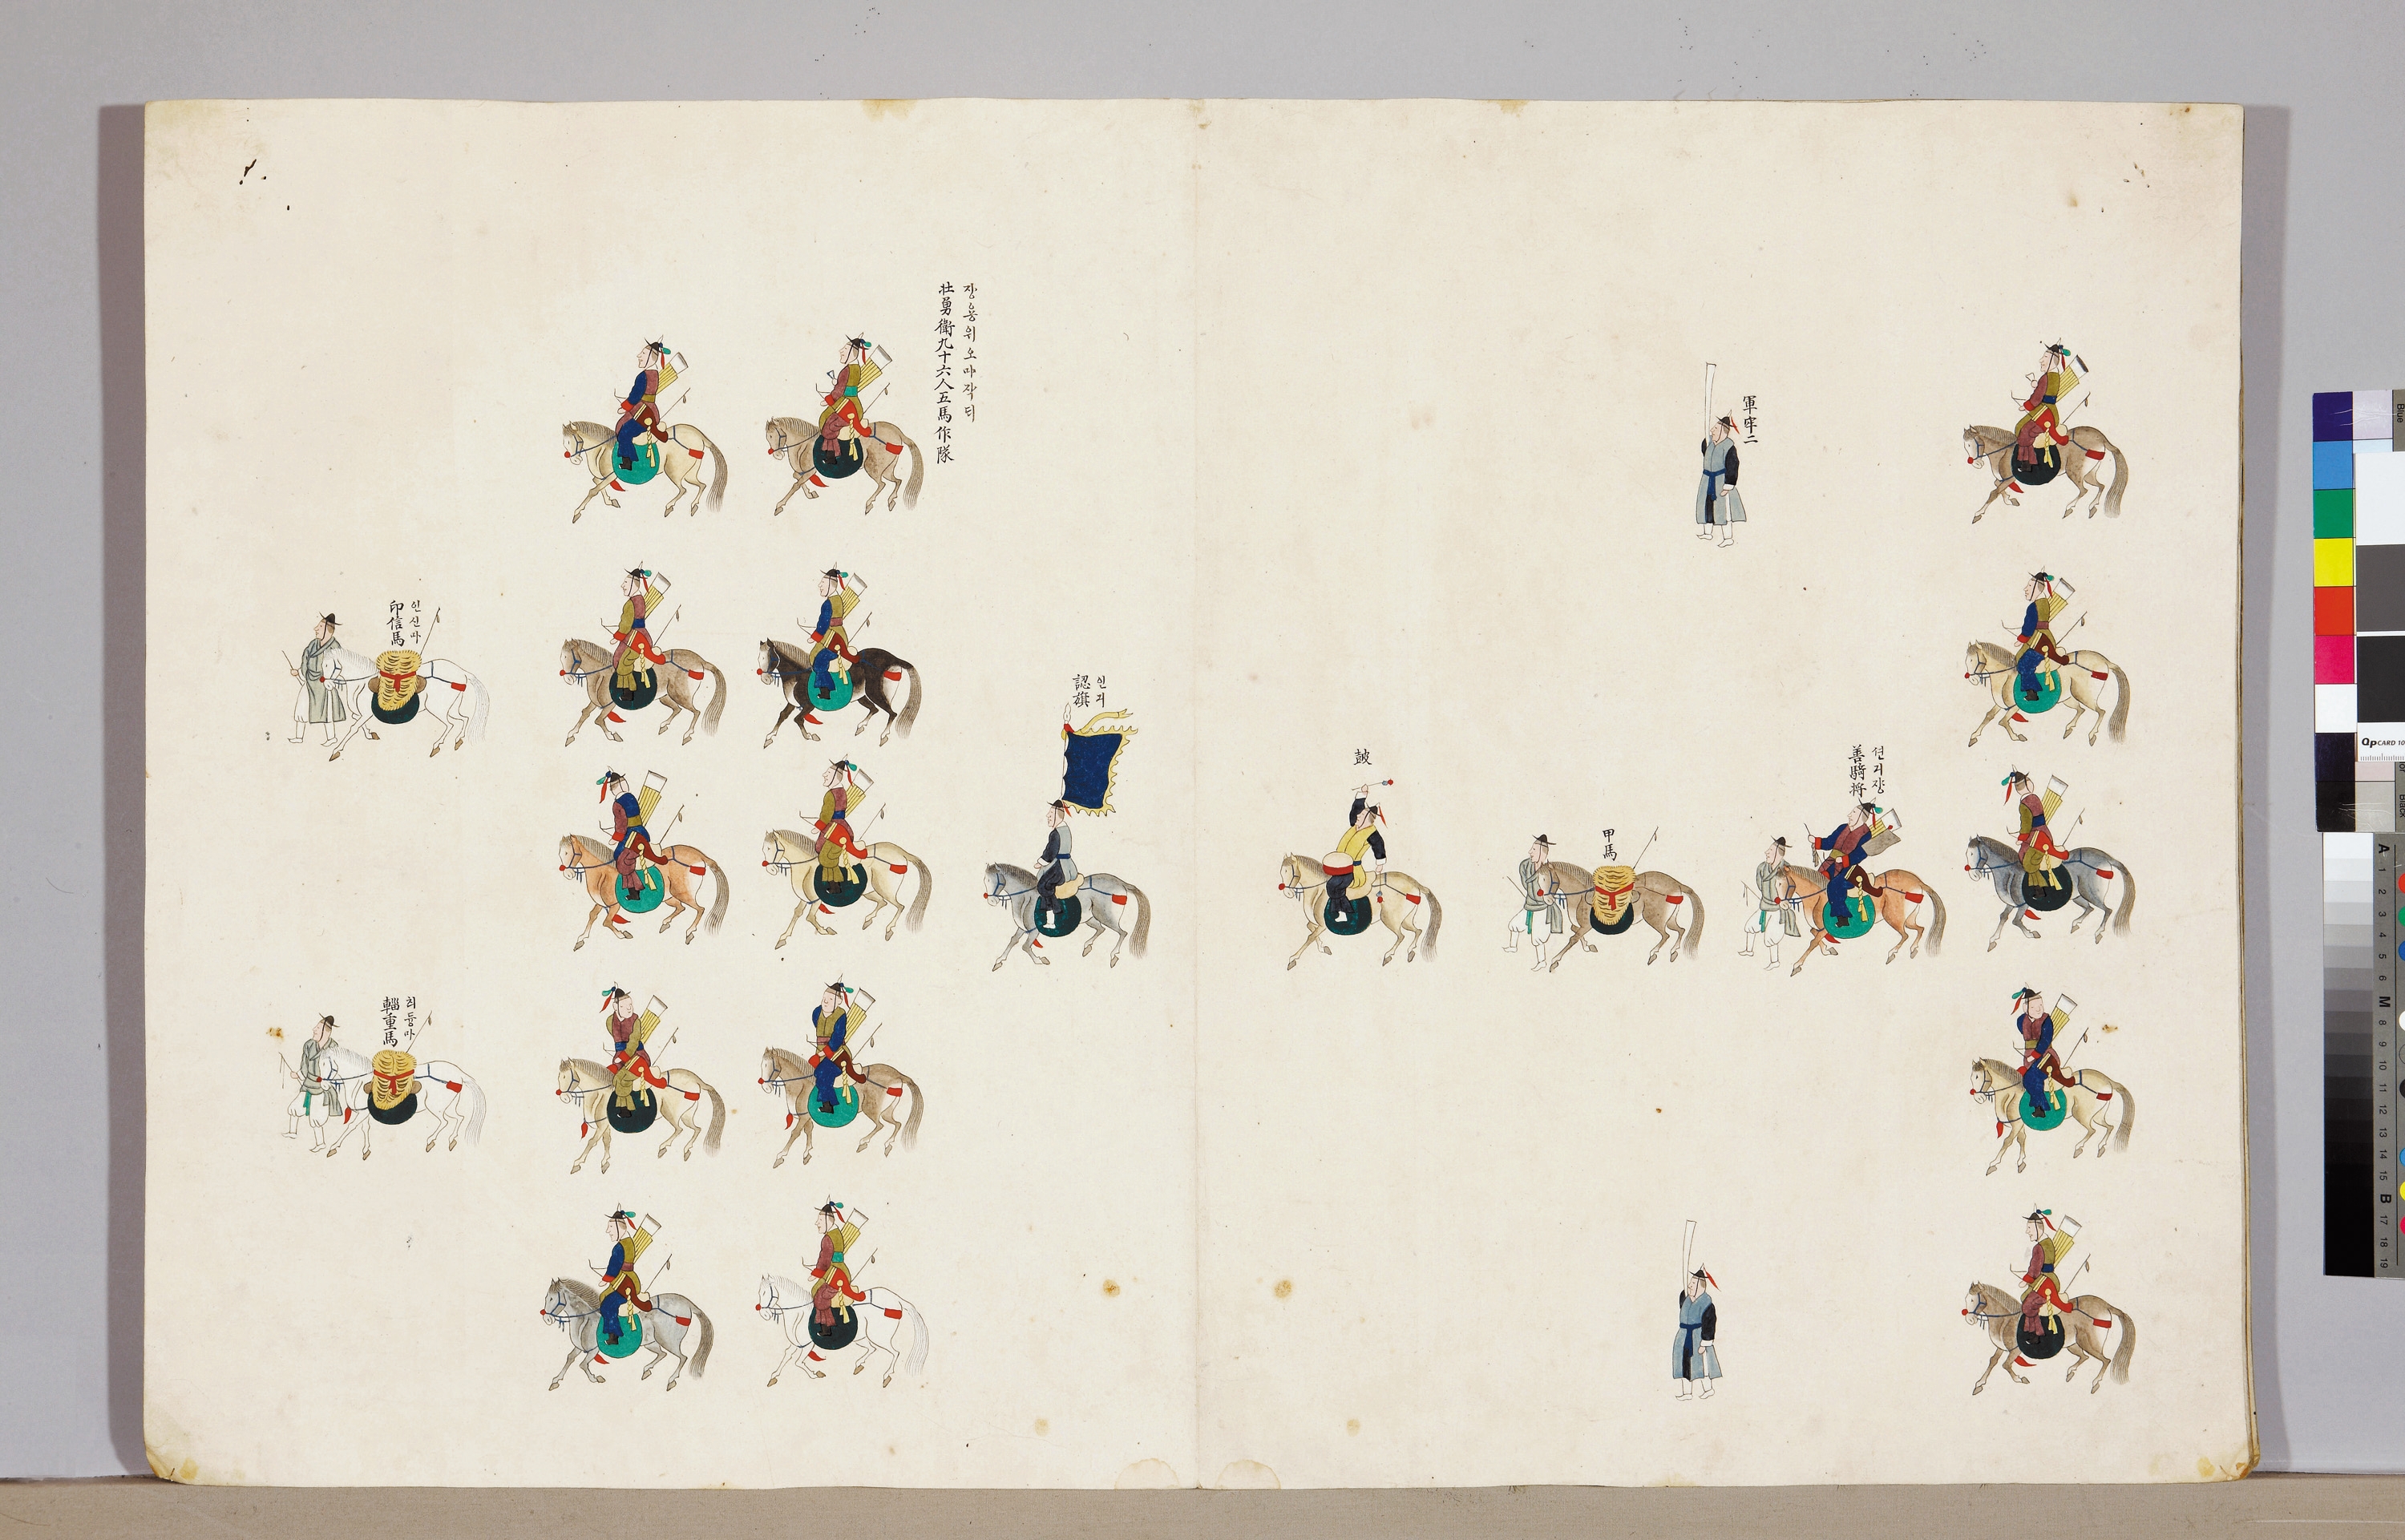 션긔쟝
善騎将
軍牢二
甲馬
皷
인긔
認旗
장용위오마작ᄃᆡ
壮勇衛九十六人五馬作隊
인신마
印信馬
츼듕마
輜重馬
Blue
QPCARD 10
Black
A 1 2 3 4 5 6 M 8 9 10 11 12 13 14 15 B 17 18 19